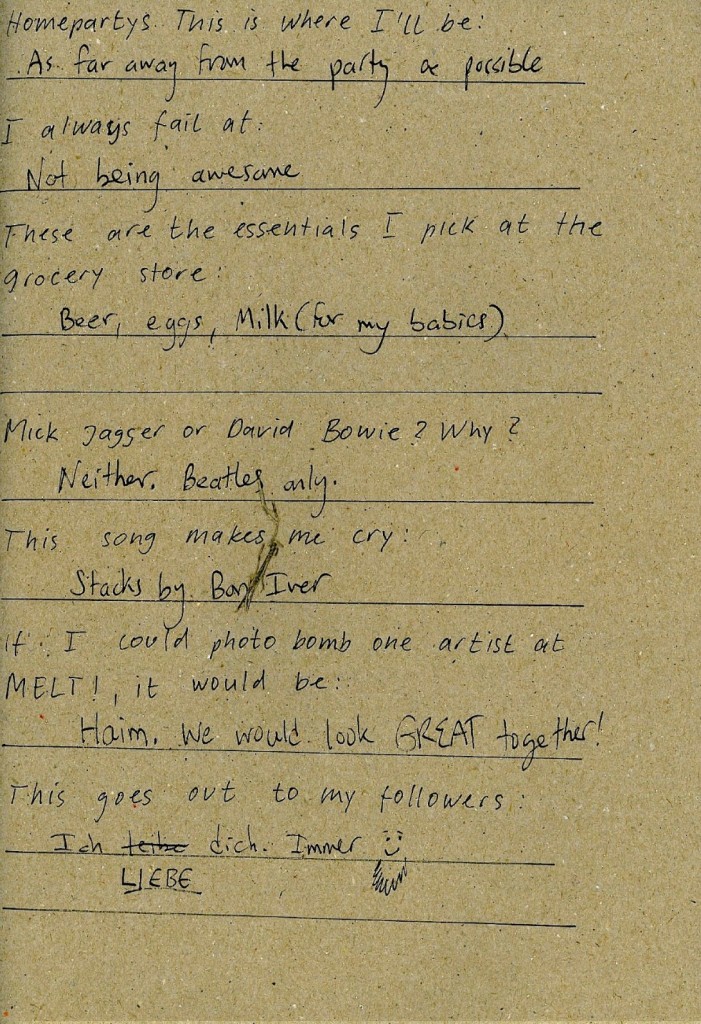 Homepartys. This is where I'll be:
As far away from the party as possible
I always fail at:
Not being awesome
These are the essentials I pick at the
grocery store:
Beer, eggs, Milk (for my babies)
Mick Jagger or David Bowie? Why?
Neither. Beatles only.
This song makes me cry:
Stacks by Bon Iver
If I could photo bomb one artist at
MELT!, it would be:
Haim. We would look GREAT together!
This goes out to my followers:
Ich dich. Immer
LIEBE